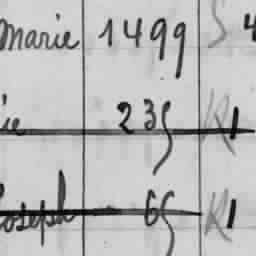 Marie 1499 S 4
ie 235 R1
Joseph 65 R1